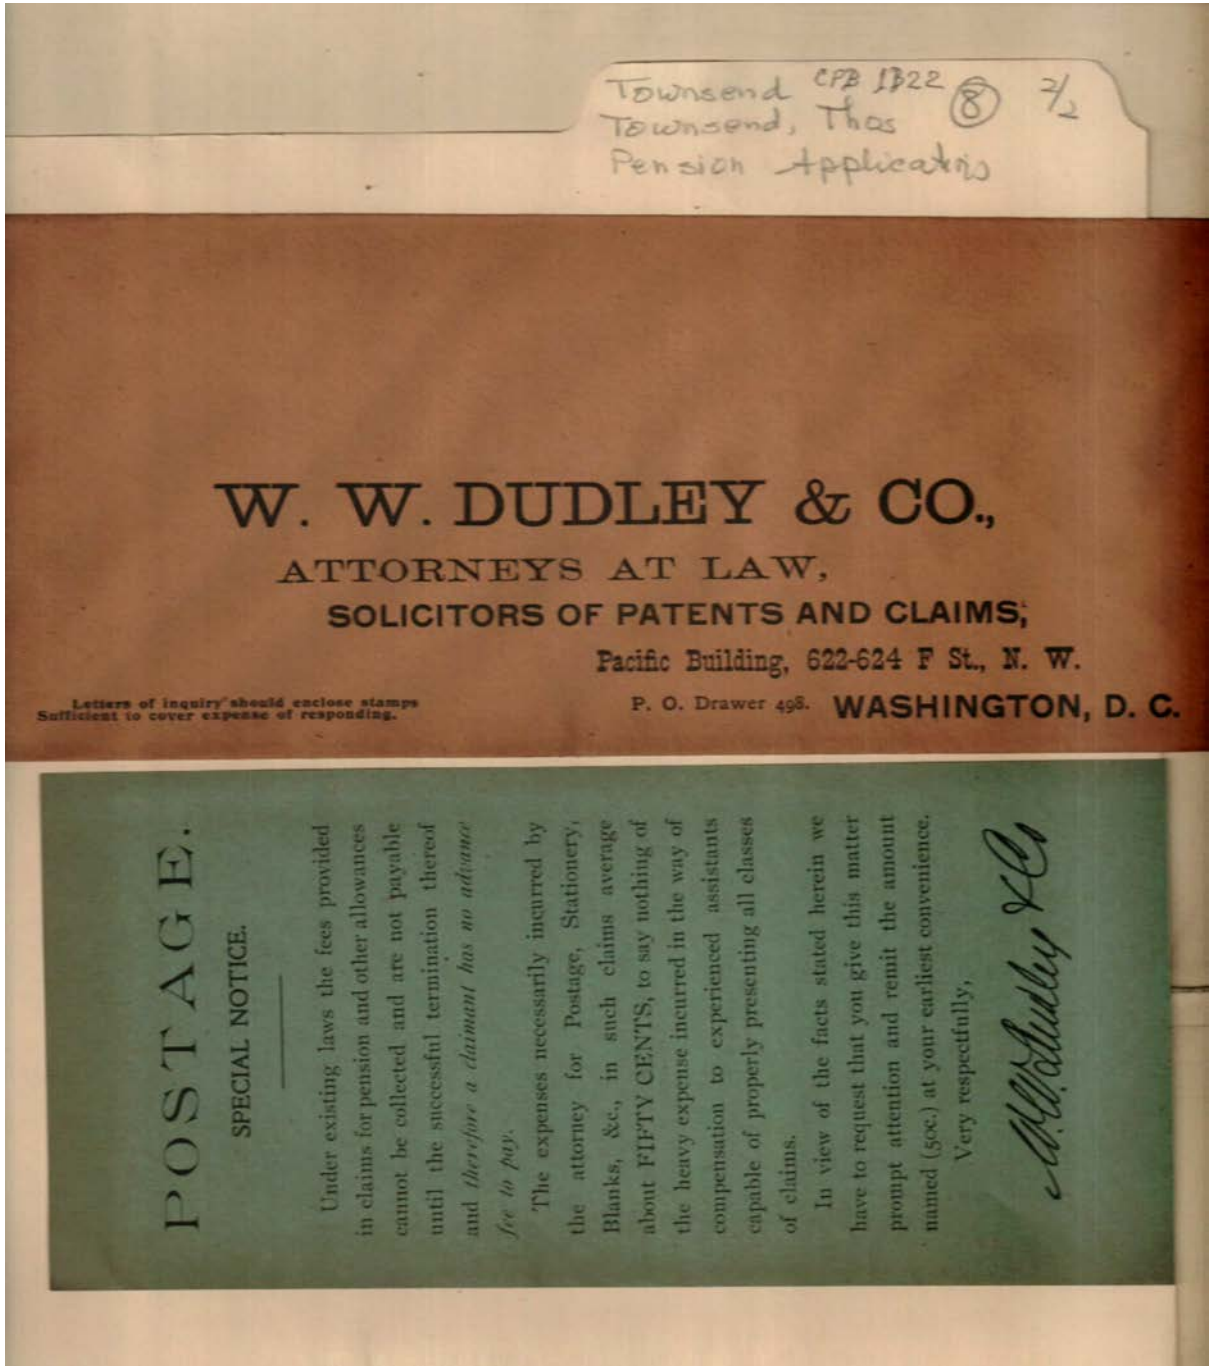 Townsend CPB 1B22 8 2/2
Townsend, Thos
Pension Applicatns
W. W. DUDLEY & CO.,
ATTORNEYS AT LAW,
SOLICITORS OF PATENTS AND CLAIMS,
Pacific Building, 622-624 F St., N. W.
Letters of inquiry should enclose stamps
Sufficient to cover expense of responding.
P. O. Drawer 498. WASHINGTON, D. C.
POSTAGE.
SPECIAL NOTICE.
Under existing laws the fees provided
in claims for pension and other allowances
cannot be collected and are not payable
until the successful termination thereof
and therefore a claimant has no advance
fee to pay.
The expenses necessarily incurred by
the attorney for Postage, Stationery,
Blanks, &c., in such claims average
about FIFTY CENTS, to say nothing of
the heavy expense incurred in the way of
compensation to experienced assistants
capable of properly presenting all classes
of claims.
In view of the facts stated herein we
have to request that you give this matter
prompt attention and remit the amount
named (50c.) at your earliest convenience.
Very respectfully,
W. W. Dudley & Co